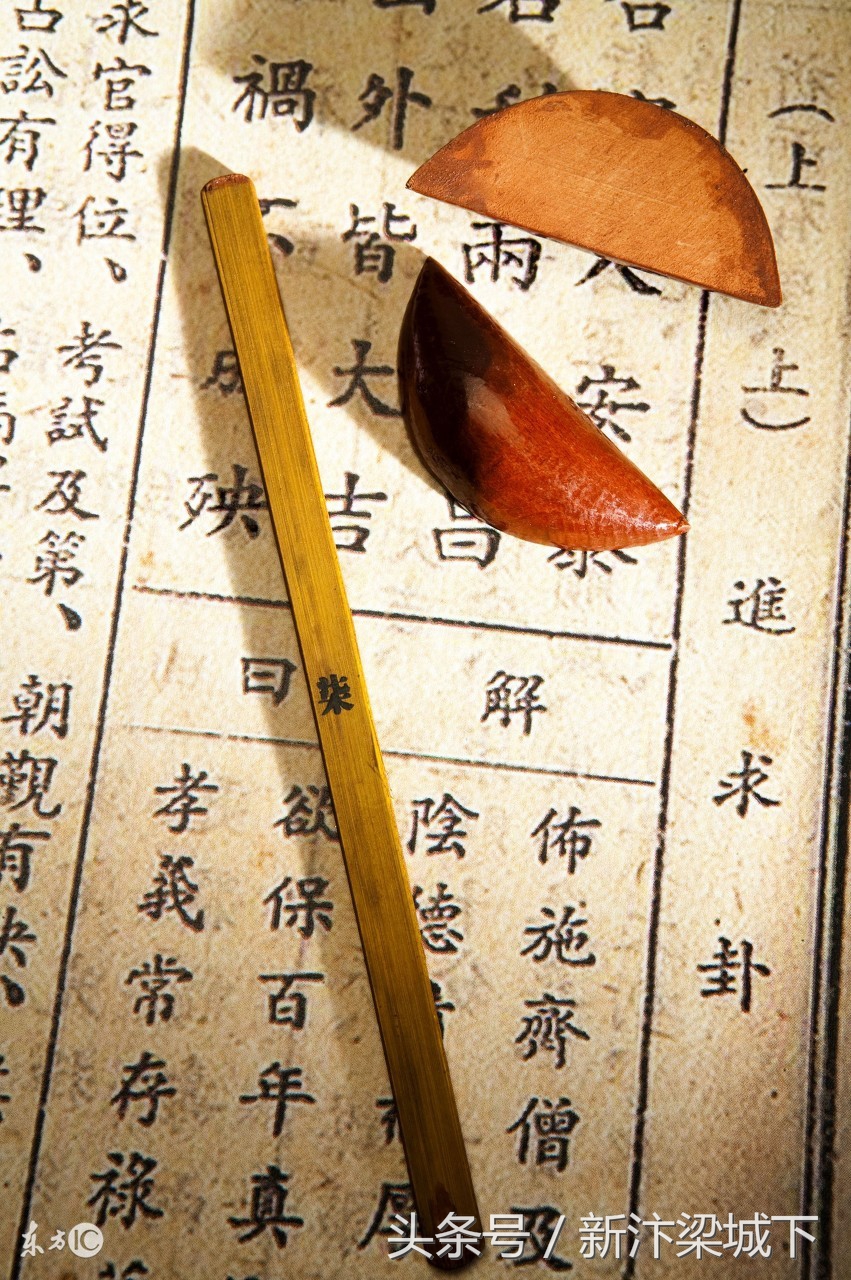 （上上）進求卦
人安泰
兩昌
外皆大吉
禍不殃
解曰
佈施齊僧及
陰德
欲保百年真
孝義常存祿
求官得位、考試及第、朝有
訟有理、
柒
东方IC
头条号 / 新汴梁城下